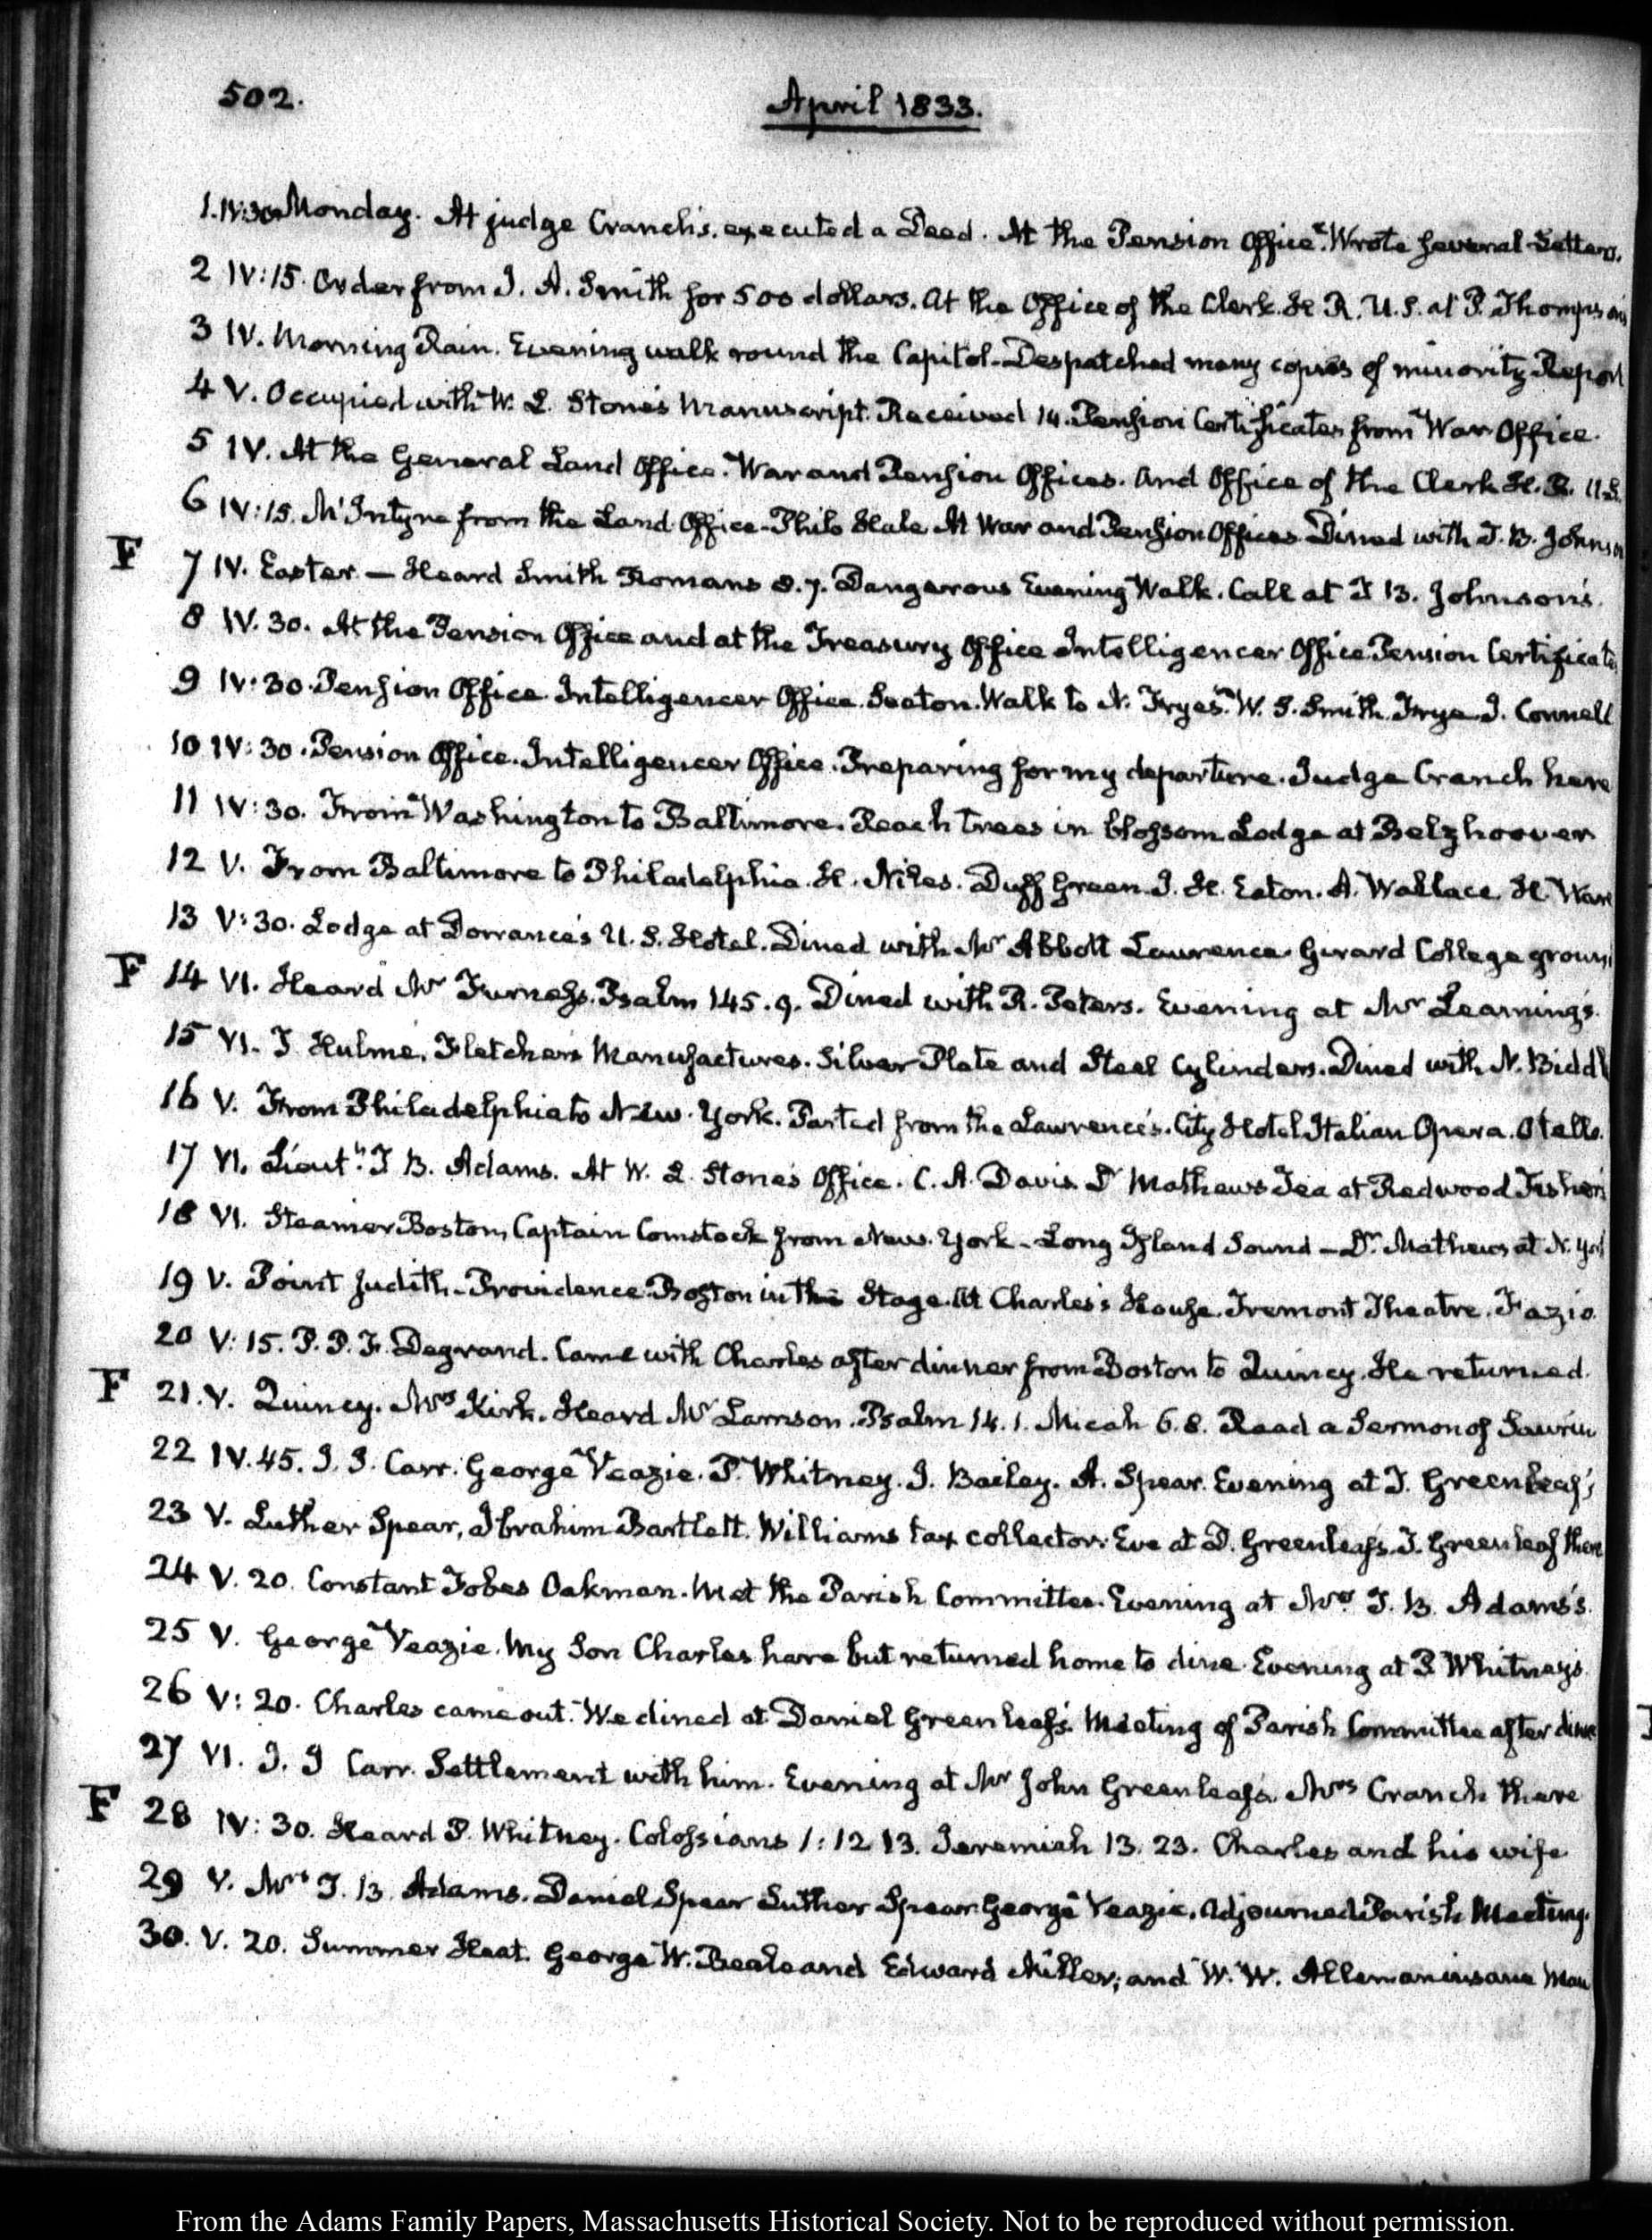 502.
April 1833.
1. IV:30. Monday. At judge Cranch's. executed a Deed. At the Pension Office. Wrote several Letters.
2 IV:15. Order from J. A. Smith for 500 dollars. At the Office of the Clerk. H. R. U.S. at P. Thompson's
3 IV. Morning Rain. Evening walk round the Capitol. Despatched many copies of minority Report
4 V. Occupied with W. L. Stone's Manuscript. Received 14. Pension Certificates from War Office.
5 IV. At the General Land Office. War and Pension Offices. And Office of the Clerk H. R. U.S.
6 IV:15. McIntyre from the Land Office. Philo Hale At War and Pension Offices Dined with T. B. Johnson
F 7 IV. Easter — Heard Smith Romans 8.7. Dangerous Evening Walk. Call at T B. Johnson's.
8 IV. 30. At the Pension Office and at the Treasury Office Intelligencer Office Pension Certificates
9 IV:30. Pension Office. Intelligencer Office. Seaton. Walk to N. Frye's. W. S. Smith. Frye J. Connell
10 IV:30. Pension Office. Intelligencer Office. Preparing for my departure. Judge Cranch here
11 IV:30. From Washington to Baltimore. Peach trees in blossom Lodge at Belzhoover
12 V. From Baltimore to Philadelphia. H. Niles. Duff Green. J. H. Eaton. A. Wallace. H. Ware
13 V:30. Lodge at Dorrance's U. S. Hotel. Dined with Mr Abbott Lawrence. Girard College ground
F 14 VI. Heard Mr Furness. Psalm 145.9. Dined with R. Peters. Evening at Mr Leaming's.
15 VI. T Hulme, Fletcher's Manufactures. Silver Plate and Steel Cylinders. Dined with N. Biddle
16 V. From Philadelphia to New-York. Parted from the Lawrence's. City Hotel Italian Opera. Otello.
17 VI. Lieutt T B. Adams. At W. L. Stone's Office. C. A. Davis. Dr Mathews Tea at Redwood Fisher's
18 VI. Steamer Boston, Captain Comstock from New-York - Long Island Sound — Dr. Mathews at N. York
19 V. Point Judith. Providence. Boston in the Stage. At Charles's House. Tremont Theatre. Fazio.
20 V:15. P. P. F. Degrand. Came with Charles after dinner from Boston to Quincy. He returned.
F 21. V. Quincy. Mrs Kirk. Heard Mr Lamson. Psalm 14.1. Micah 6.8. Read a Sermon of Saurin
22 IV.45. J. J. Carr. George Veazie. P. Whitney. J. Bailey. A. Spear. Evening at T. Greenleaf's
23 V. Luther Spear, Ibrahim Bartlett. Williams tax collector. Eve at D. Greenleaf's. T. Greenleaf there
24 V. 20. Constant Fobes Oakman. Met the Parish Committee. Evening at Mrs. T. B. Adams's.
25 V. George Veazie. My Son Charles here but returned home to dine. Evening at P. Whitney's
26 V: 20. Charles came out. We dined at Daniel Greenleaf's. Meeting of Parish Committee after dinner
27 VI. J. J Carr. Settlement with him. Evening at Mr John Greenleaf's. Mrs Cranch there
F 28 IV: 30. Heard P. Whitney. Colossians 1:12 13. Jeremiah 13. 23. Charles and his wife
29 V. Mrs T. B. Adams. Daniel Spear Luther Spear George Veazie. Adjourned Parish Meeting.
30. V. 20. Summer Heat. George W. Beale and Edward Miller; and W. W. Alleman insane man
From the Adams Family Papers, Massachusetts Historical Society. Not to be reproduced without permission.